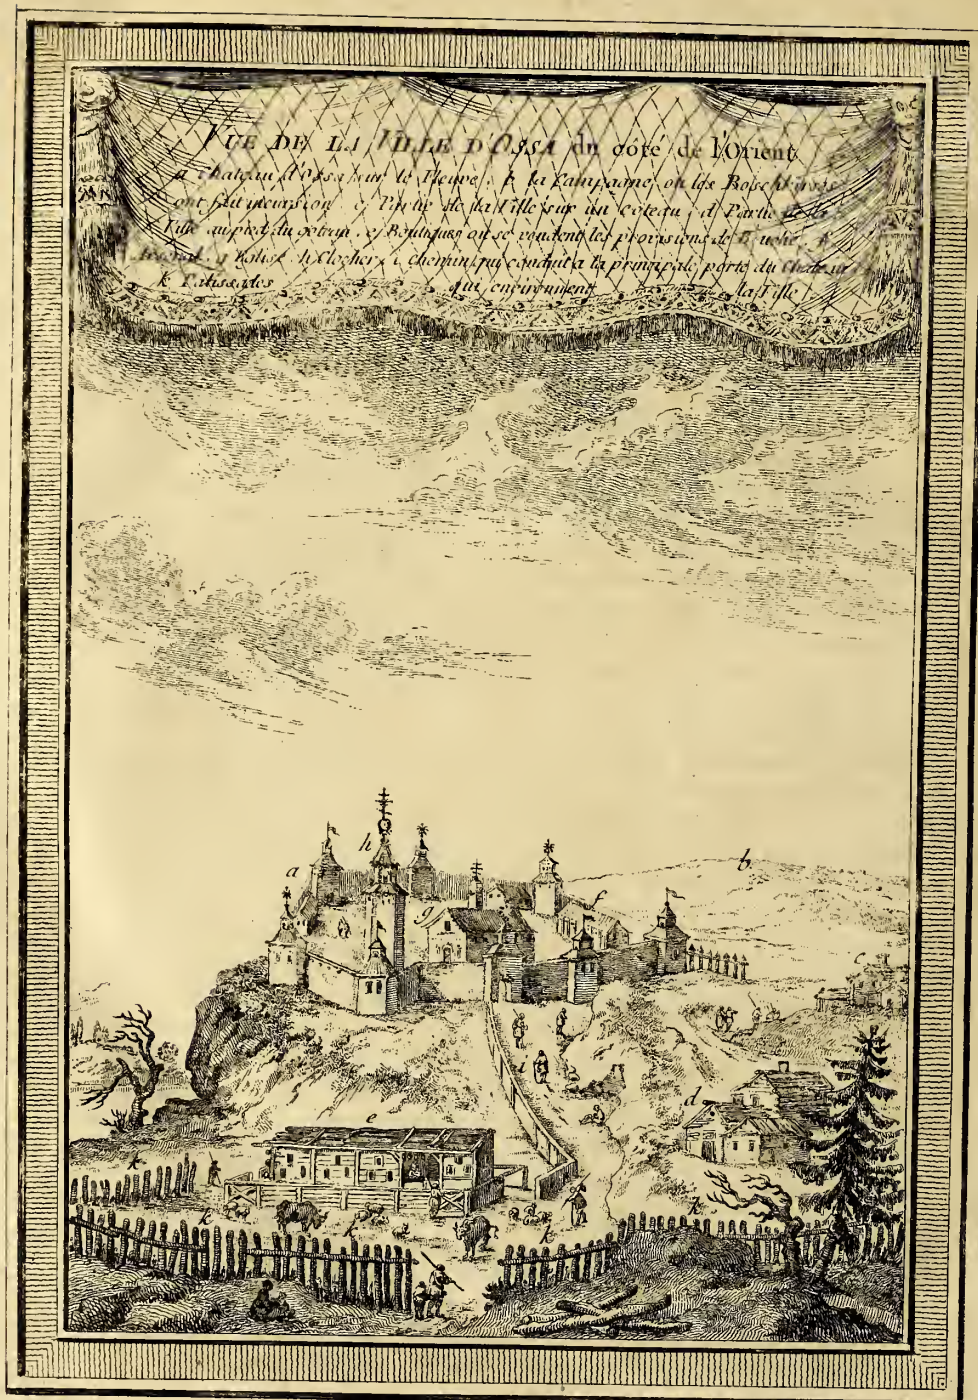 VUE DE LA VILLE D'OSSA du côté de l'Orient
a Chateau d'Ossa sur le Fleuve; b la Campagne, ou les
ont fait incursion c, Partie de la Ville sur un coteau; d Partie de la
Ville au pied du coteau, e, Boutiques ou se vendent les provisions de
g Eglise h Clocher, i, Chemin qui conduit a la principale porte du Chateau
k Palissades qui environnent la Ville
h
a
b
g
f
c
i
d
e
k
k
k
k